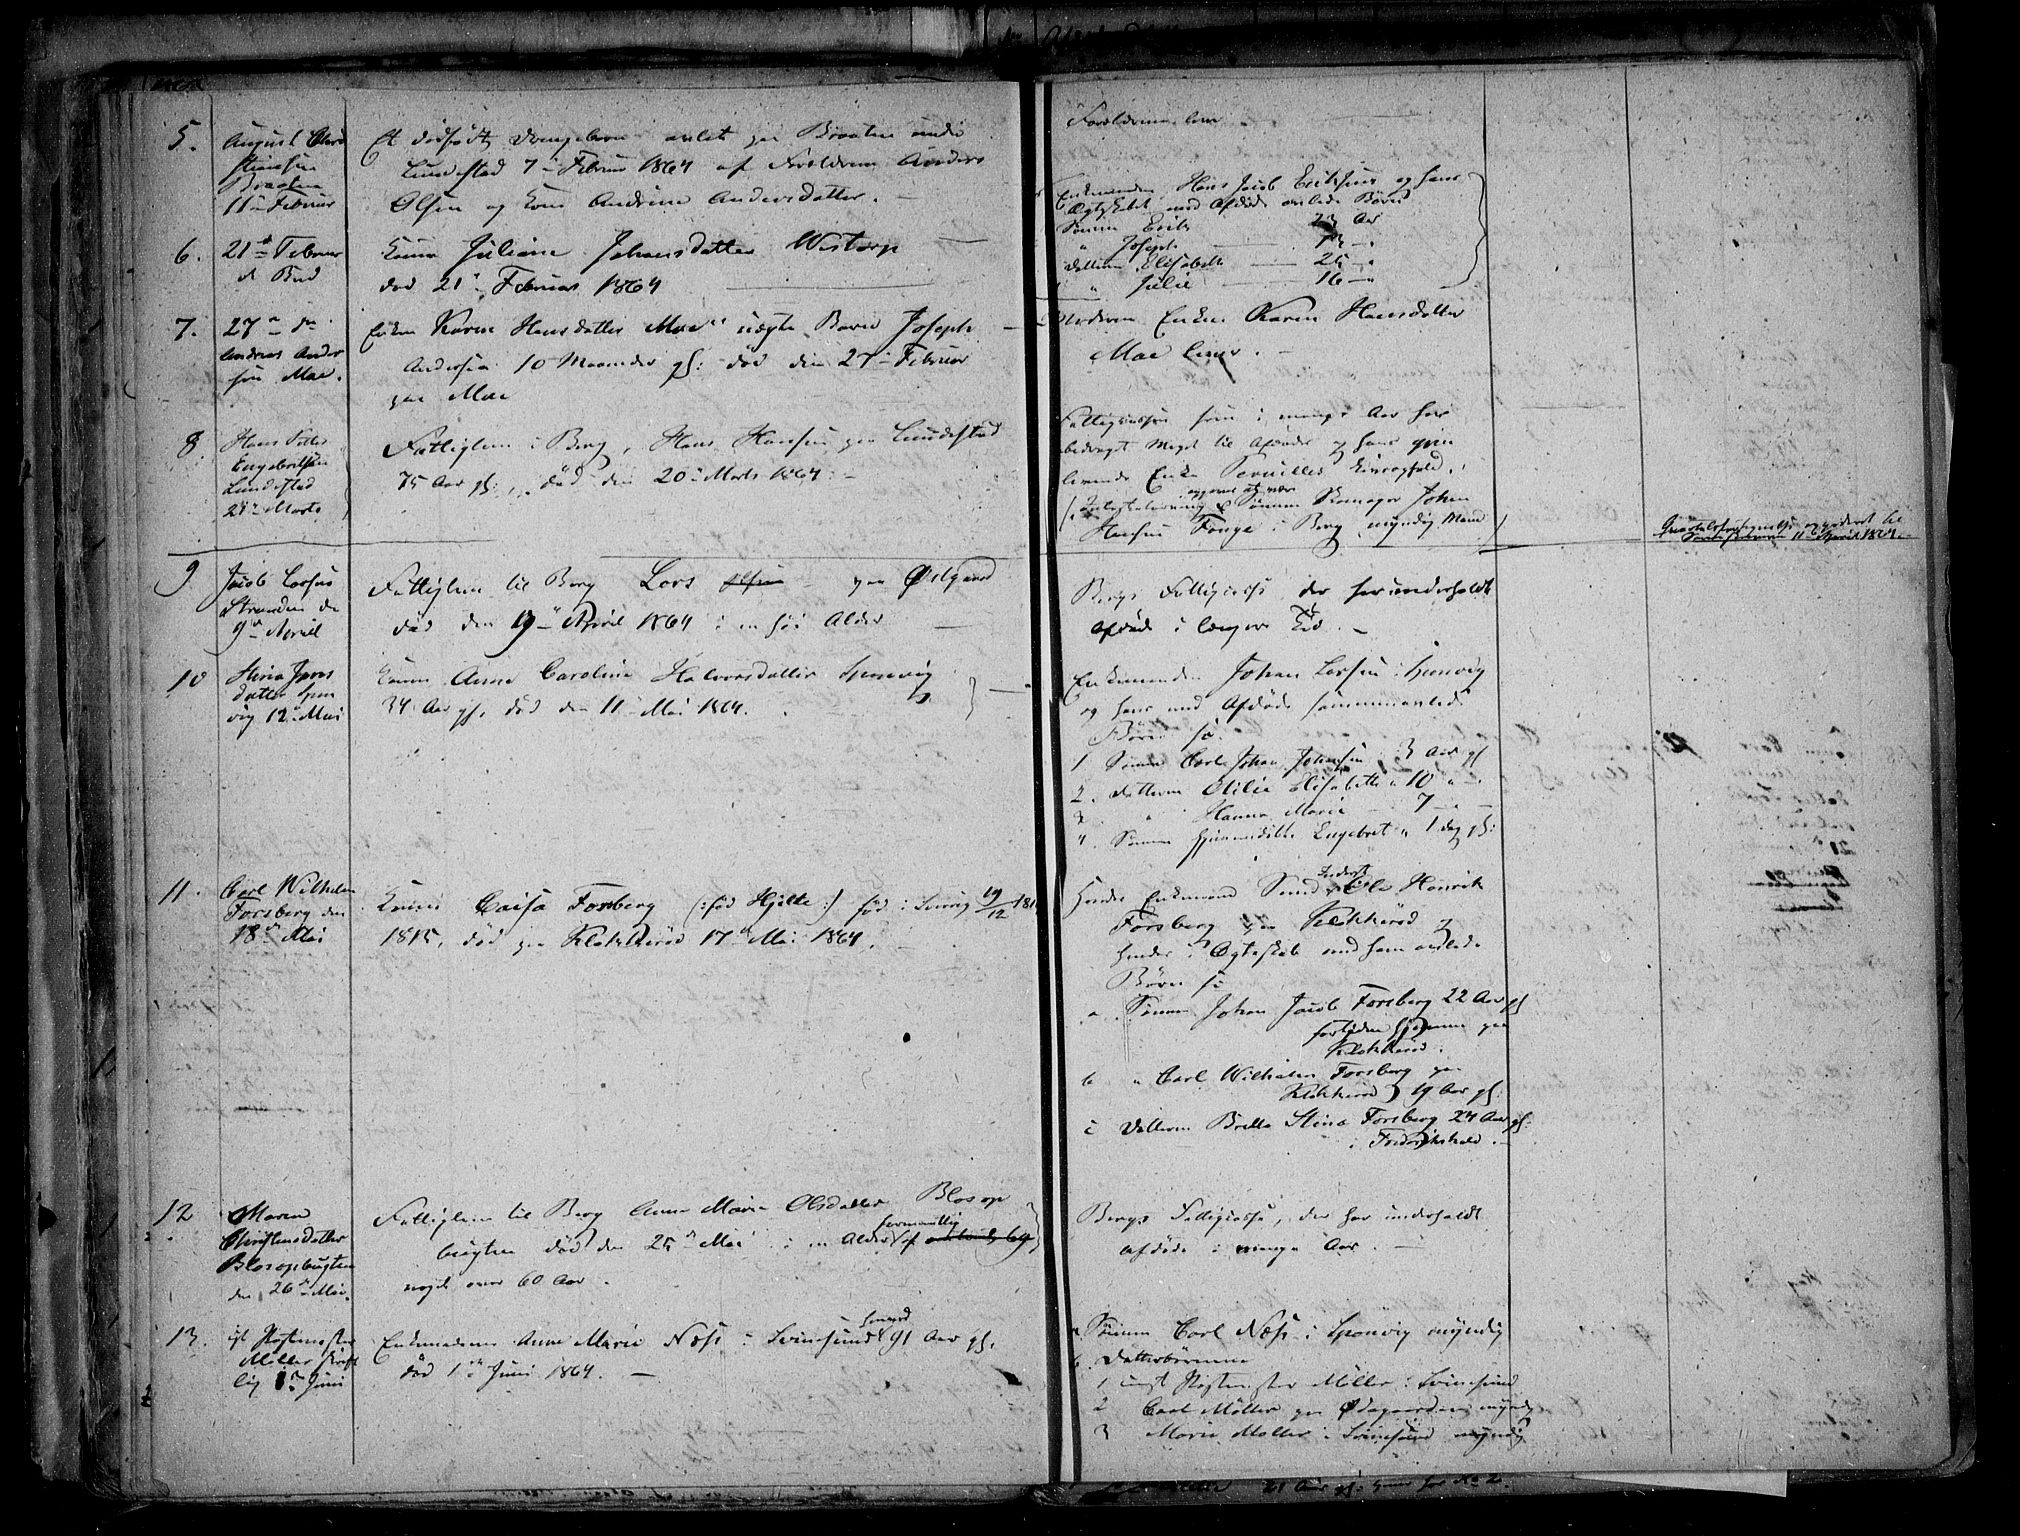 5.
August Chri
stiansen
Braaten
11te Februar
Et dødfødt Drengebarn avlet paa Braaten under
Lundestad 7de Februar 1864 af Forældrene Anders
Olsen og Kone Andrine Andersdatter. —
Forældrene lever
6.
21de Februar
Konen Juliane Johansdatter Wistorp —
død 21de Februar 1864
Enkemanden Hans Jacob Eriksen og hans
Ægteskabet med Afdøde avlede Børn
Sønnen Erik 23 Aar
" Joseph — 13 — "
Datteren Elisabeth — 25 — "
" Julie — 16 — "
7.
27de do
Andreas Ander
sen Mae.
Enken Karen Hansdatter Maes uægte Barn Joseph
Andersen 10 Maaneder gl: død den 27de Februar
paa Mae
Moderen Enken Karen Hansdatter
Mae lever. —
8.
Hans Petter
Engebretsen
Lundestad
21de Marts
Fattiglem i Berg, Hans Hansen paa Lundestad
75 Aar gl:, død den 20de Marts 1864. —
Fattigcassen som i mange Aar har
bidraget Meget til Afdøde og hans gjen
levende Enke Pernilles Livsophold.
Sønnen Skomager Johan
Hansen Fange i Berg, myndig Mand
11te April 1864.
9.
Jacob Larsen
Stranden do
9de April
Fattiglem til Berg Lars Olsen paa Østgaard
død den 9de April 1864 i en høi Alder —
Bergs Fattigcasse der har underholdt
Afdøde i længere Tid. —
10
Stina Jans
datter Spon
vig 12te Mai
Konen Anne Caroline Halvorsdatter Sponvig
34 Aar gl, død den 11te Mai 1864.
Enkemanden Johan Larsen i Sponvig
og hans med Afdøde sammenavlede
Børn sa.
1 Sønnen Carl Johan Johansen 3 Aar gl
2. Datteren Otilie Elisabeth " 10 " —
3 " Hanna Marie — 7 — —
4. Sønnen hjemmedøbte Engebret " 1 dag gl:
11.
Carl Wilhelm
Forsberg den
18de Mai
Konen Caisa Forsberg (: fød Hjelte :) fød i Sverrig 19/12 181
1815, død paa Klokkerød 17de Mai 1864. —
Hendes Enkemand Smed Inderst Ole Henrik
Forsberg paa Klokkerød og
hendes i Ægteskab med ham avlede
Børn sa
a. Sønnen Johan Jacob Forsberg 22 Aar gl
fortiden hjemme paa
Klokkerød.
b " Carl Wilhelm Forsberg paa
Klokkerød 19 Aar gl:
c Datteren Britta Stina Forsberg 24 Aar gl:
i Fredrikshald. —
12
Maren
Christensdatter
Blasopbugten
den 26de Mai.
Fattiglem til Berg Anne Marie Olsdatter Blasop
bugten død den 25de Mai i en Alder af formentlig
noget over 60 Aar.
Bergs Fattigcasse, der har underholdt
Afdøde i mange Aar. —
13.
Postmester
Møller skrift
lig 1ste Juni
Enkemadame Anne Marie Næss i Svinesund 91 Aar gl.
død 1ste Juni 1864. —
a Sønnen Carl Næss i Sponvig myndig
b. Datterbørnene
1 Postmester Møller i Svinesund
2 Carl Møller paa Ødegaarden myndig
3 Marie Møller i Svinesund myndig
21 Aar gl.